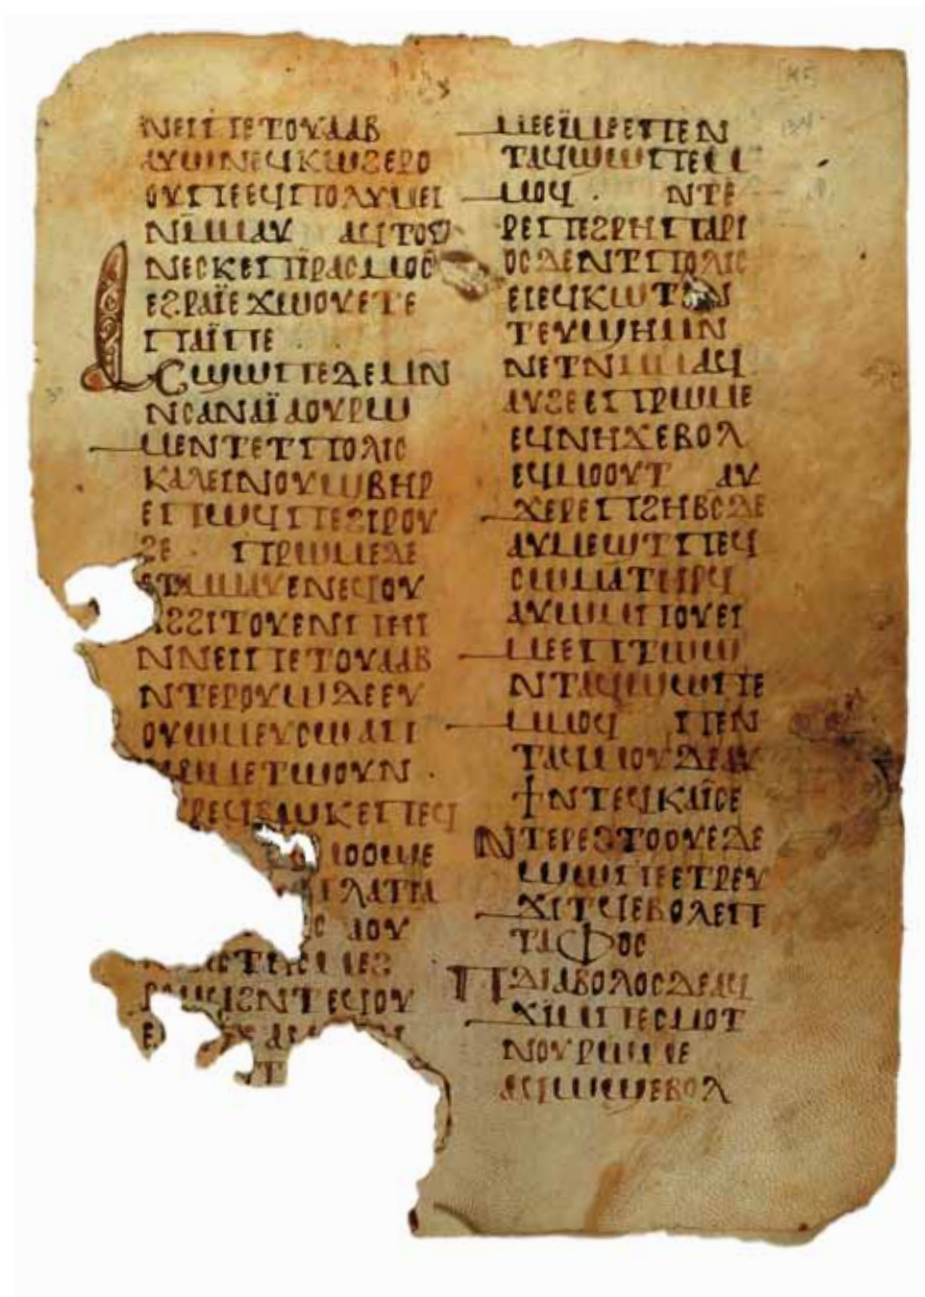 ⲛⲉⲓⲡⲉⲧⲟⲩⲁⲁⲃ
ⲁⲩⲱⲛⲉϥⲕⲱϩⲉⲣⲟ
ⲟⲩⲡⲉⲉϥⲡⲟⲗⲩⲙⲉⲓ
ⲛⲙⲙⲁⲩ ⲁϥⲧⲟⲩ
ⲛⲉⲥⲕⲉⲡⲓⲣⲁⲥⲙⲟⲥ
ⲉϩⲣⲁⲓ̈ⲉϫⲱⲟⲩⲉⲧⲉ
ⲡⲁⲓ̈ⲡⲉ
ⲁⲥϣⲱⲡⲉⲇⲉⲙⲛ
ⲛⲥⲁⲛⲁⲓ̈ⲁⲟⲩⲣⲱ
ⲙⲉⲛⲧⲉⲧⲡⲟⲗⲓⲥ
ⲕⲁⲗⲉⲓⲛⲟⲩϣⲃⲏⲣ
ⲉⲡⲱϥⲡⲉϩⲓⲣⲟⲩ
ϩⲉ ⲡⲣⲱⲙⲉⲇⲉ
ⲉⲧⲙⲙⲁⲩⲉⲛⲉϥⲟⲩ
ⲁϩϩⲓⲧⲟⲩⲉⲛⲡⲏⲓ
ⲛⲛⲉⲓⲡⲉⲧⲟⲩⲁⲁⲃ
ⲛⲧⲉⲣⲟⲩⲱⲇⲉⲉⲩ
ⲟⲩⲱⲙⲉⲩⲥⲱⲁⲡ
ⲣⲱⲙⲉⲧⲱⲟⲩⲛ
ⲣⲉϥⲃⲱⲕⲉⲡⲉϥ
ⲙⲟⲟϣⲉ
ⲡⲗⲁⲧⲓⲁ
ⲁⲟⲩ
ϩⲛⲧⲉϥⲟⲩ
ⲙⲉⲉⲓ̈ⲙⲉⲉⲡⲉⲛ
ⲧⲁϥϣⲱⲡⲉⲙ
ⲙⲟϥ ⲛⲧⲉ
ⲣⲉⲡⲉϩⲣⲏⲡⲁⲣⲓ
ⲟⲥⲇⲉⲛⲧⲡⲟⲗⲓⲥ
ⲉⲓⲉϥⲕⲱⲧⲉⲛ
ⲧⲉⲩϣⲏⲙⲛ
ⲛⲉⲧⲛⲙⲙⲁϥ
ⲁⲩϩⲉⲉⲡⲣⲱⲙⲉ
ⲉϥⲛⲏϫⲉⲃⲟⲗ
ⲉϥⲙⲟⲟⲩⲧ ⲁⲩ
ϫⲉⲣⲉⲡϩⲏⲃⲥⲇⲉ
ⲁⲩⲙⲉϣⲧⲡⲉϥ
ⲥⲱⲙⲁⲧⲏⲣϥ
ⲁⲩⲱⲙⲡⲟⲩⲉⲓ
ⲙⲉⲉⲡⲧⲱϣ
ⲛⲧⲁϥϣⲱⲡⲉ
ⲙⲙⲟϥ ⲡⲉⲛ
ⲧⲁϥⲙⲟⲩⲇⲉⲁⲩ
ϯⲛⲧⲉϥⲕⲁⲓ̈ⲥⲉ
ⲛⲧⲉⲣⲉϩⲧⲟⲟⲩⲉⲇⲉ
ϣⲱⲡⲉⲉⲧⲣⲉⲩ
ϫⲓⲧϥⲉⲃⲟⲗⲉⲡ
ⲧⲁⲫⲟⲥ
ⲡⲇⲓⲁⲃⲟⲗⲟⲥⲇⲉⲁϥ
ϫⲓⲙⲡⲉⲥⲙⲟⲧ
ⲛⲟⲩⲣⲱⲙⲉ
ⲁϥⲱϣⲉⲃⲟⲗ